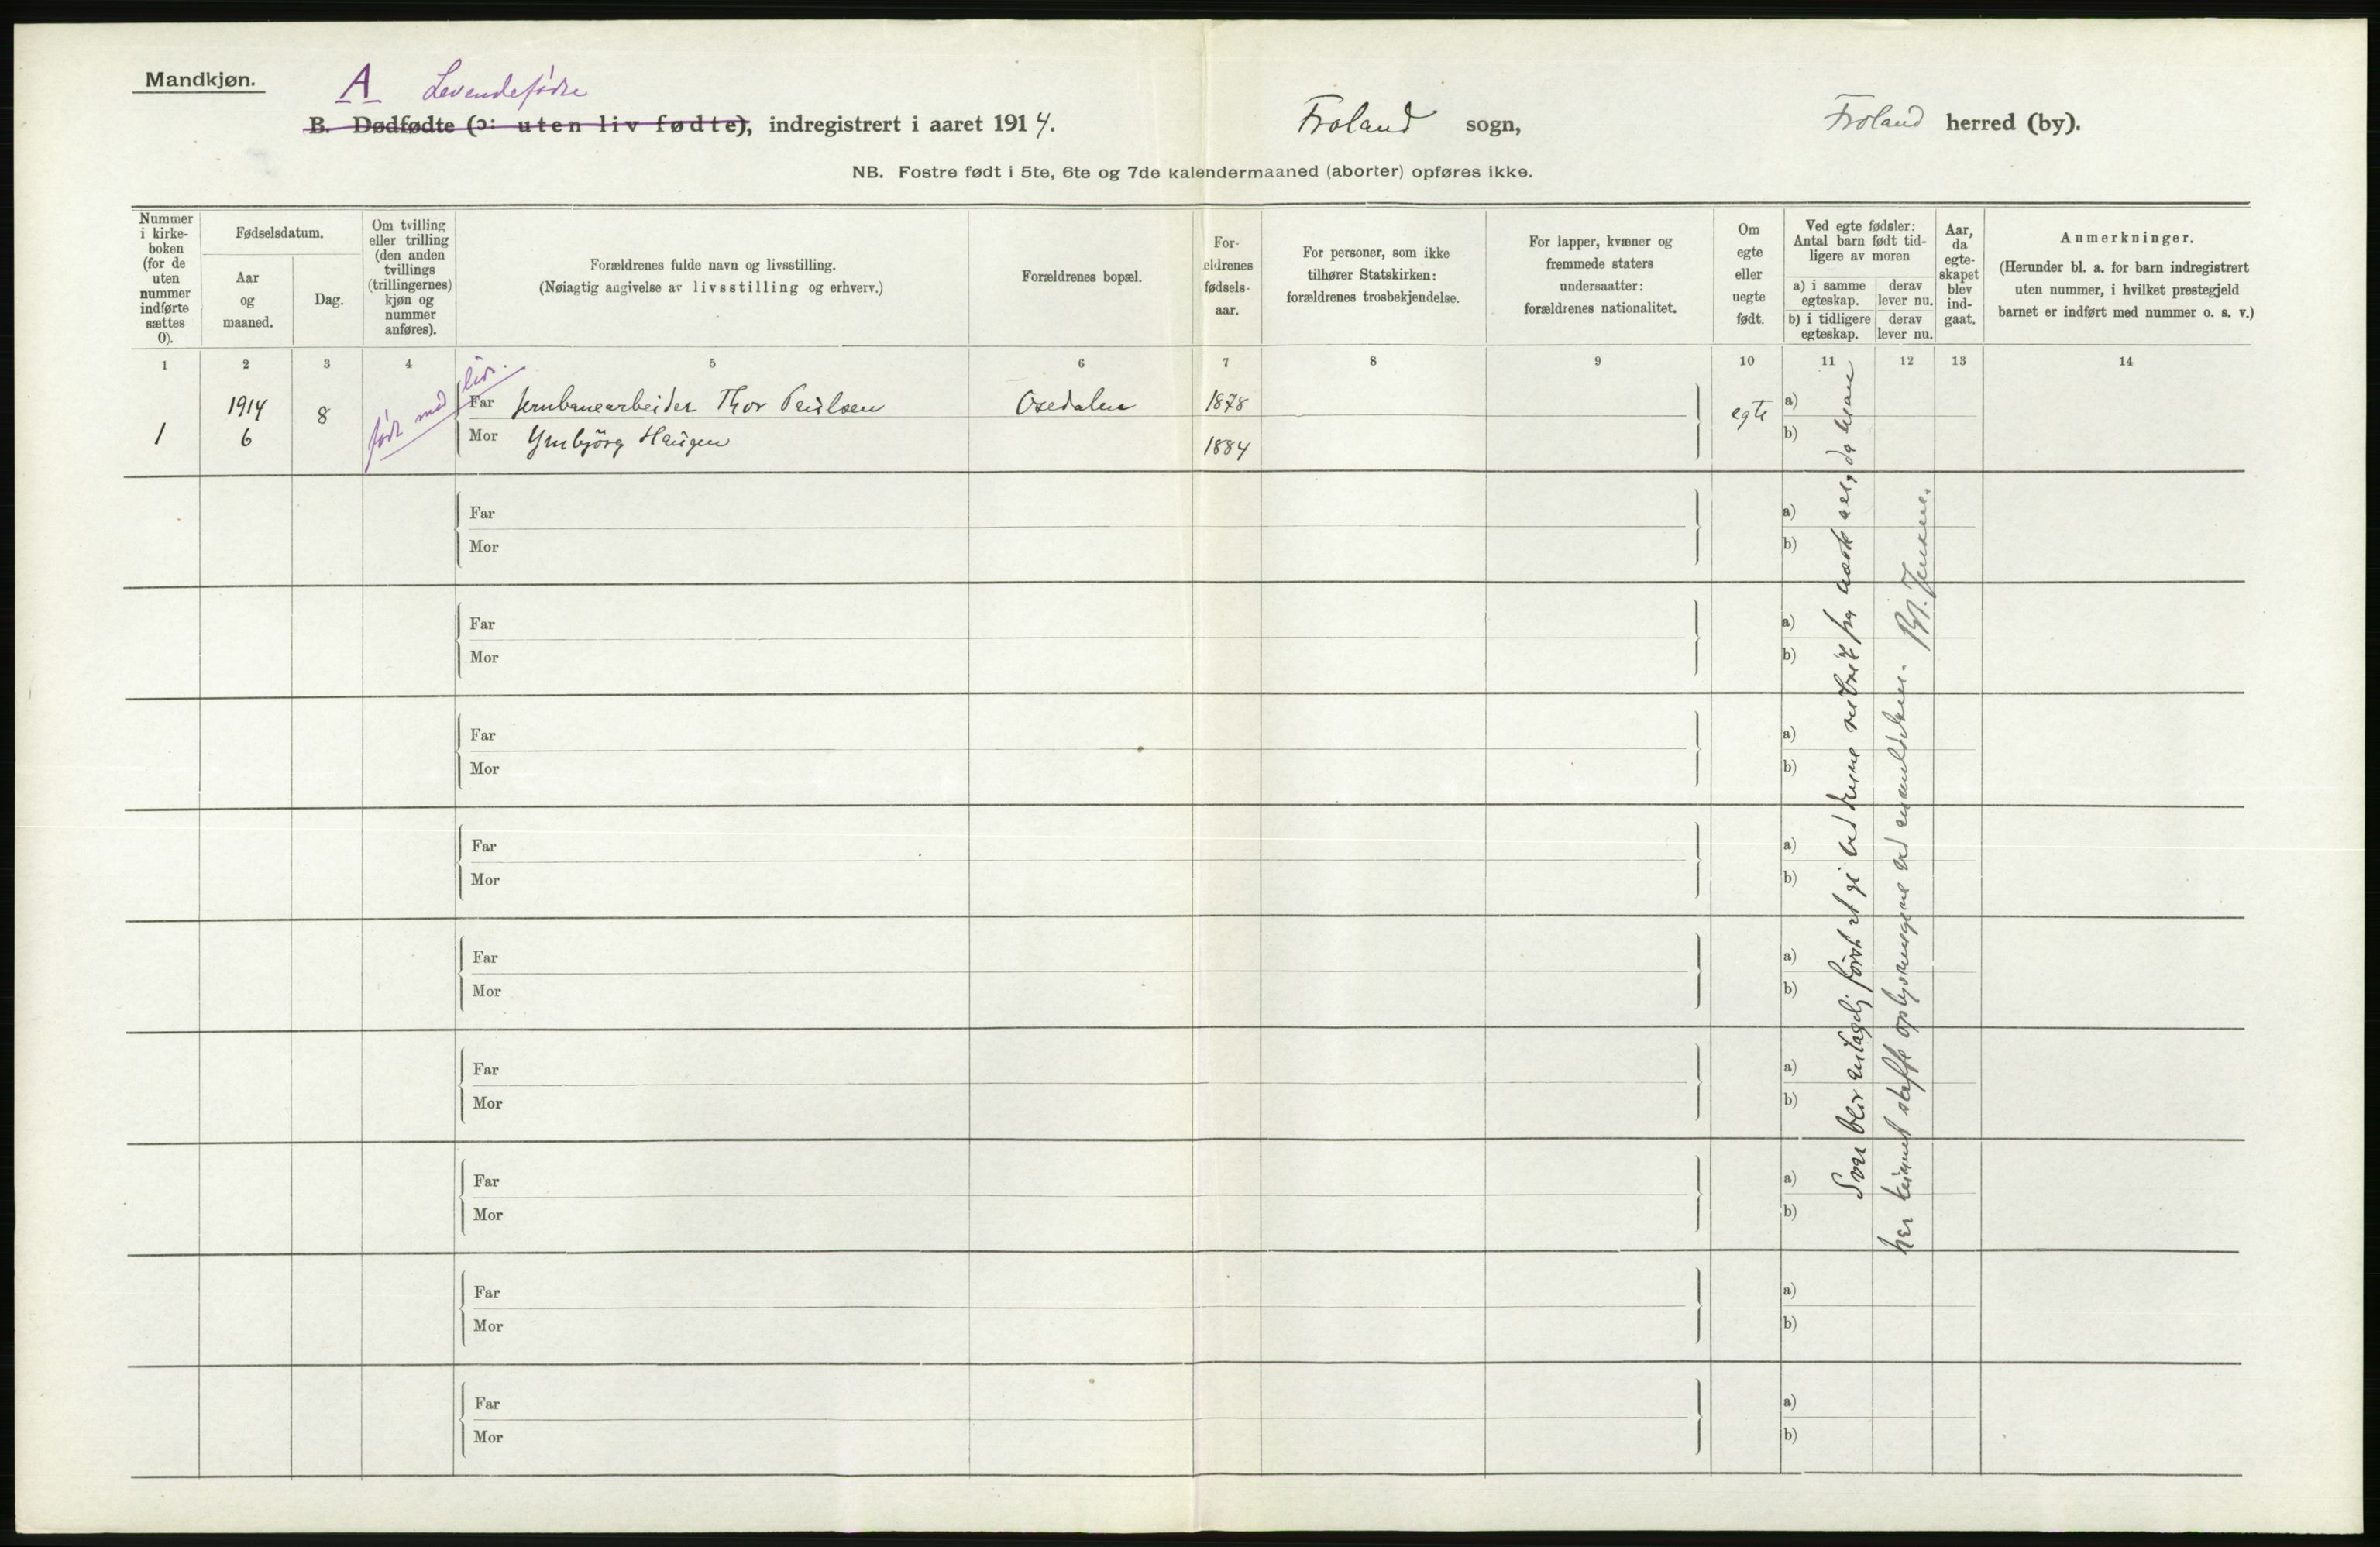 Mandkjøn.
A Levendefødte
B. Dødfødte (ɔ: uten liv fødte), indregistrert i aaret 1914. Froland sogn, Froland herred (by).
NB. Fostre født i 5te, 6te og 7de kalendermaaned (aborter) opføres ikke.
Nummer i kirke-boken (for de uten nummer indførte sættes 0).
Fødselsdatum.
Aar og maaned.
Dag.
Om tvilling eller trilling (den anden tvillings (trillingernes) kjøn og nummer anføres).
Forældrenes fulde navn og livsstilling.
(Nøiagtig angivelse av livsstilling og erhverv.)
Forældrenes bopæl.
For-eldrenes fødsels-aar.
For personer, som ikke tilhører Statskirken: forældrenes trosbekjendelse.
For lapper, kvæner og fremmede staters undersaatter: forældrenes nationalitet.
Om egte eller uegte født.
Ved egte fødsler: Antal barn født tid-ligere av moren
a) i samme egteskap.
derav lever nu.
b) i tidligere egteskap.
derav lever nu.
Aar, da egte-skapet blev ind-gaat.
Anmerkninger.
(Herunder bl. a. for barn indregistrert uten nummer, i hvilket prestegjeld barnet er indført med nummer o. s. v.)
1 2 3 4 5 6 7 8 9 10 11 12 13 14
1 1914 6 8 født med liv.
Far Jernbanearbeider Thor Paulsen Osedalen 1878 egte a)
Mor Ymbjörg Haugen 1884 b)
Far a)
Mor b)
Far a)
Mor b)
Far a)
Mor b)
Far a)
Mor b)
Far a)
Mor b)
Far a)
Mor b)
Far a)
Mor b)
Far a)
Mor b)
Far a)
Mor b)
blir först at gi ved denne fra aar, da man
her kunne skaffe oplysningene ved anmeldelsen.